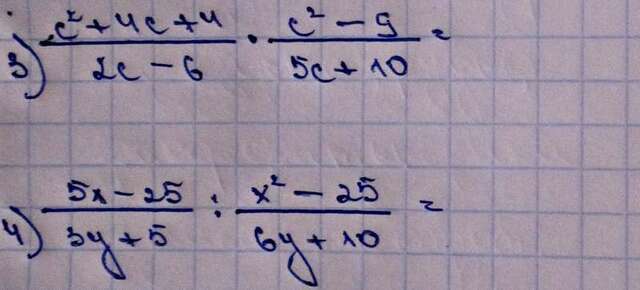 3) (c² + 4c + 4)/(2c - 6) · (c² - 9)/(5c + 10) =
4) (5x - 25)/(3y + 5) : (x² - 25)/(6y + 10) =